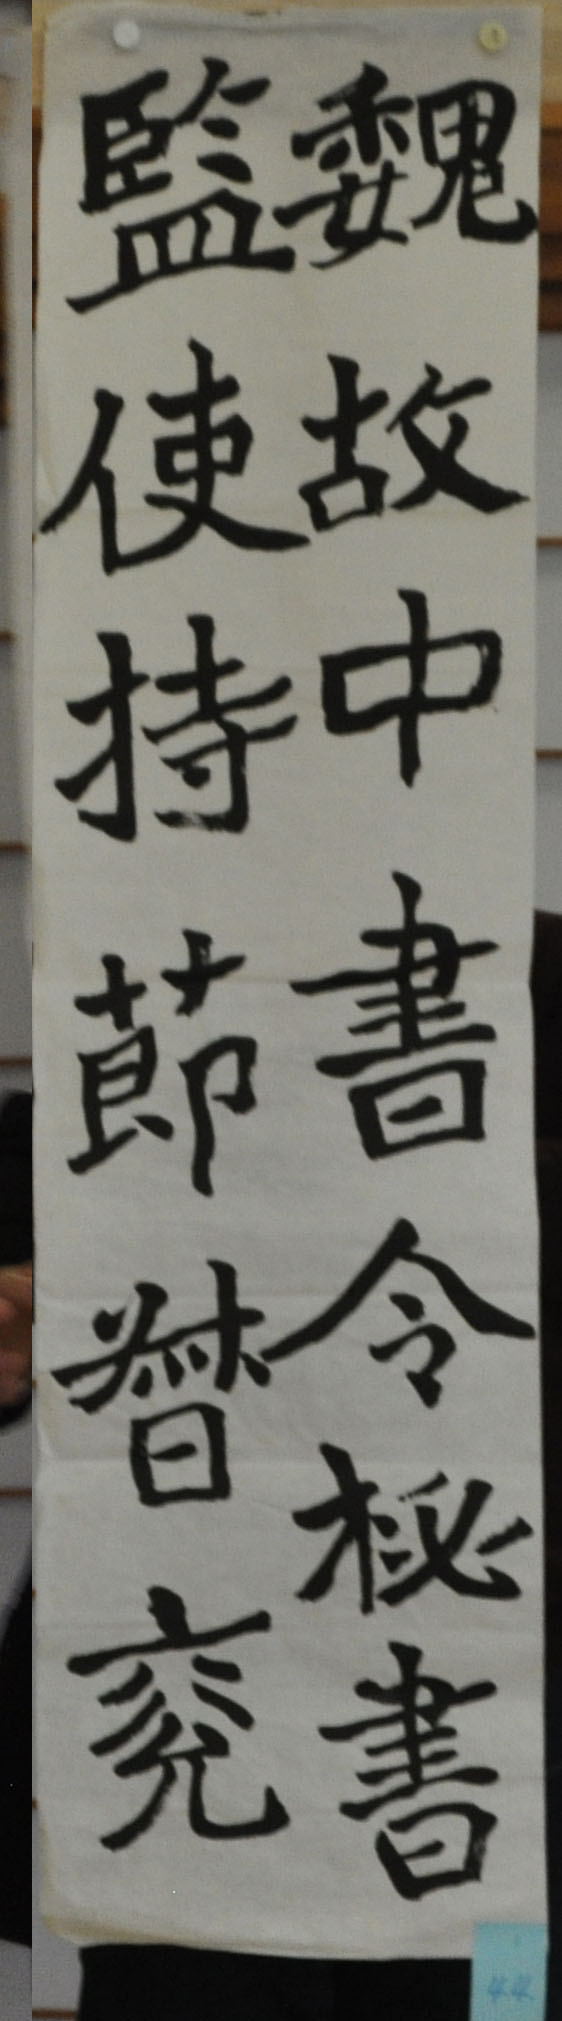 魏故中書令秘書
監使持節督兖
44